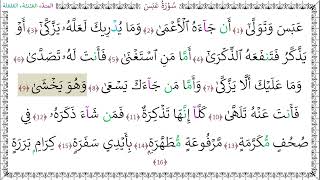 سُورَةُ عَبَسَ
المد، الغنة، القلقلة
عَبَسَ وَتَوَلَّىٰٓ ﴿1﴾ أَن جَآءَهُ ٱلْأَعْمَىٰ ﴿2﴾ وَمَا يُدْرِيكَ لَعَلَّهُۥ يَزَّكَّىٰٓ ﴿3﴾ أَوْ
يَذَّكَّرُ فَتَنفَعَهُ ٱلذِّكْرَىٰٓ ﴿4﴾ أَمَّا مَنِ ٱسْتَغْنَىٰ ﴿5﴾ فَأَنتَ لَهُۥ تَصَدَّىٰ ﴿6﴾
وَمَا عَلَيْكَ أَلَّا يَزَّكَّىٰ ﴿7﴾ وَأَمَّا مَن جَآءَكَ يَسْعَىٰ ﴿8﴾ وَهُوَ يَخْشَىٰ ﴿9﴾
فَأَنتَ عَنْهُ تَلَهَّىٰ ﴿10﴾ كَلَّآ إِنَّهَا تَذْكِرَةٌ ﴿11﴾ فَمَن شَآءَ ذَكَرَهُۥ ﴿12﴾ فِى
صُحُفٍ مُّكَرَّمَةٍ ﴿13﴾ مَّرْفُوعَةٍ مُّطَهَّرَةٍۭ ﴿14﴾ بِأَيْدِى سَفَرَةٍ ﴿15﴾ كِرَامٍۭ بَرَرَةٍ
﴿16﴾